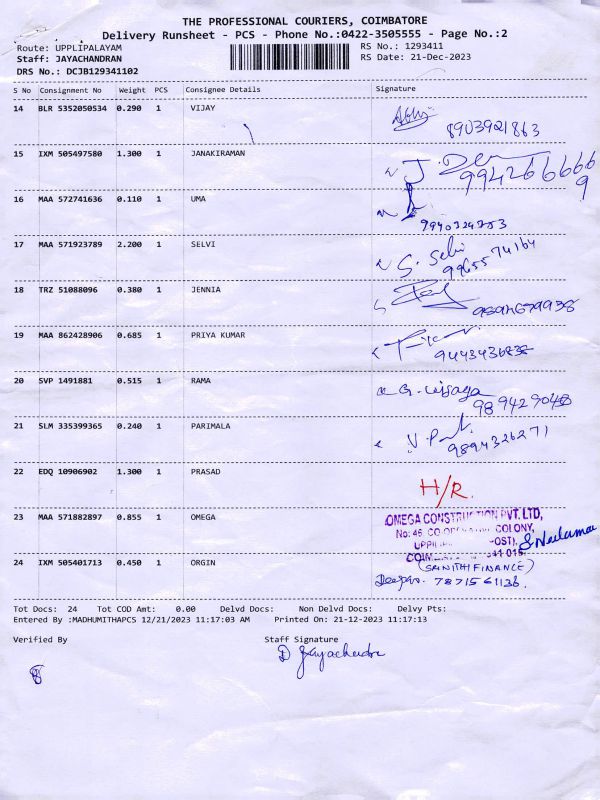 THE PROFESSIONAL COURIERS, COIMBATORE
Delivery Runsheet - PCS - Phone No.:0422-3505555 - Page No.:2
Route: UPPLIPALAYAM RS No.: 1293411
Staff: JAYACHANDRAN RS Date: 21-Dec-2023
DRS No.: DCJB129341102
S No Consignment No Weight PCS Consignee Details Signature
14 BLR 5352050534 0.290 1 VIJAY
8903921863
15 IXM 505497580 1.300 1 JANAKIRAMAN J.
9942666669
16 MAA 572741636 0.110 1 UMA
17 MAA 571923789 2.200 1 SELVI S. Selvi
9965574164
18 TRZ 51088096 0.380 1 JENNIA
19 MAA 862428906 0.685 1 PRIYA KUMAR
9443436838
20 SVP 1491881 0.515 1 RAMA
21 SLM 335399365 0.240 1 PARIMALA
9894326271
22 EDQ 10906902 1.300 1 PRASAD H/R.
23 MAA 571882897 0.855 1 OMEGA OMEGA CONSTRUCTION PVT. LTD,
No: 46, COLONY,
24 IXM 505401713 0.450 1 ORGIN (SANITHI FINANCE)
7871561136.
Tot Docs: 24 Tot COD Amt: 0.00 Delvd Docs: Non Delvd Docs: Delvy Pts:
Entered By :MADHUMITHAPCS 12/21/2023 11:17:03 AM Printed On: 21-12-2023 11:17:13
Verified By Staff Signature
D Jayachandra